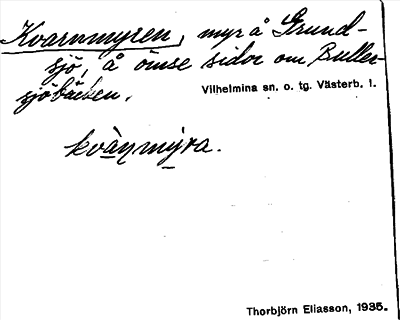 Kvarnmyren, myr å Grund-
sjö, å ömse sidor om Buller-
sjöbäcken.
Vilhelmina sn. o. tg. Västerb. l.
kvàṇmýra.
Thorbjörn Eliasson, 1935.